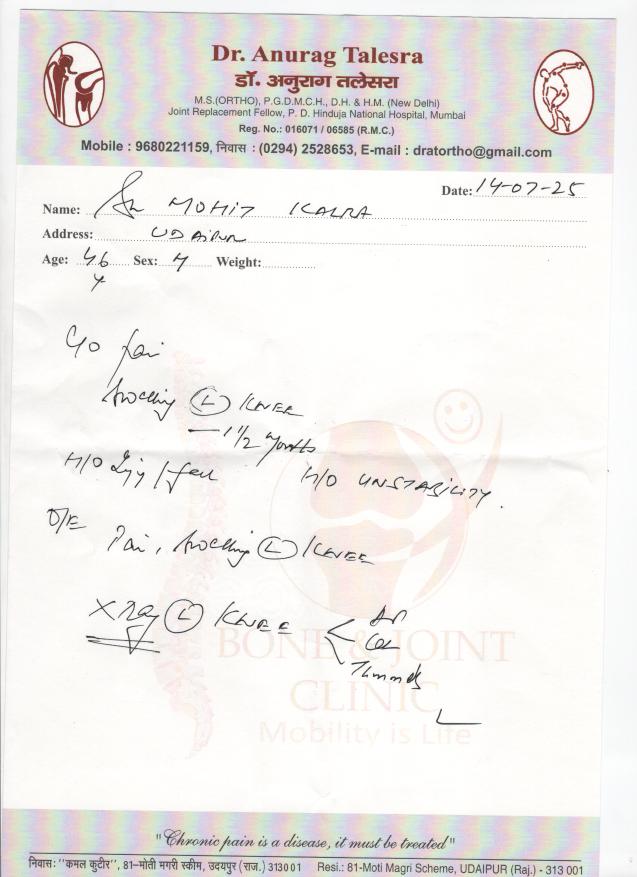 Dr. Anurag Talesra
डॉ. अनुराग तलेसरा
M.S.(ORTHO), P.G.D.M.C.H., D.H. & H.M. (New Delhi)
Joint Replacement Fellow, P. D. Hinduja National Hospital, Mumbai
Reg. No.: 016071 / 06585 (R.M.C.)
Mobile : 9680221159, निवास : (0294) 2528653, E-mail : dratortho@gmail.com
Date: 14-07-25
Name: MOHIT KALRA
Address: UDAIPUR
Age: 46 Sex: M Weight:
Y
C/O Pain
Swelling (L) KNEE
— 1 1/2 months
H/O Injy / fall H/O UNSTABILITY.
O/E Pain, Swelling (L) KNEE
X Ray (L) KNEE < AP
Tunnel
BONE & JOINT
CLINIC
Mobility is Life
"Chronic pain is a disease, it must be treated"
निवास: "कमल कुटीर", 81-मोती मगरी स्कीम, उदयपुर (राज.) 313001 Resi.: 81-Moti Magri Scheme, UDAIPUR (Raj.) - 313 001